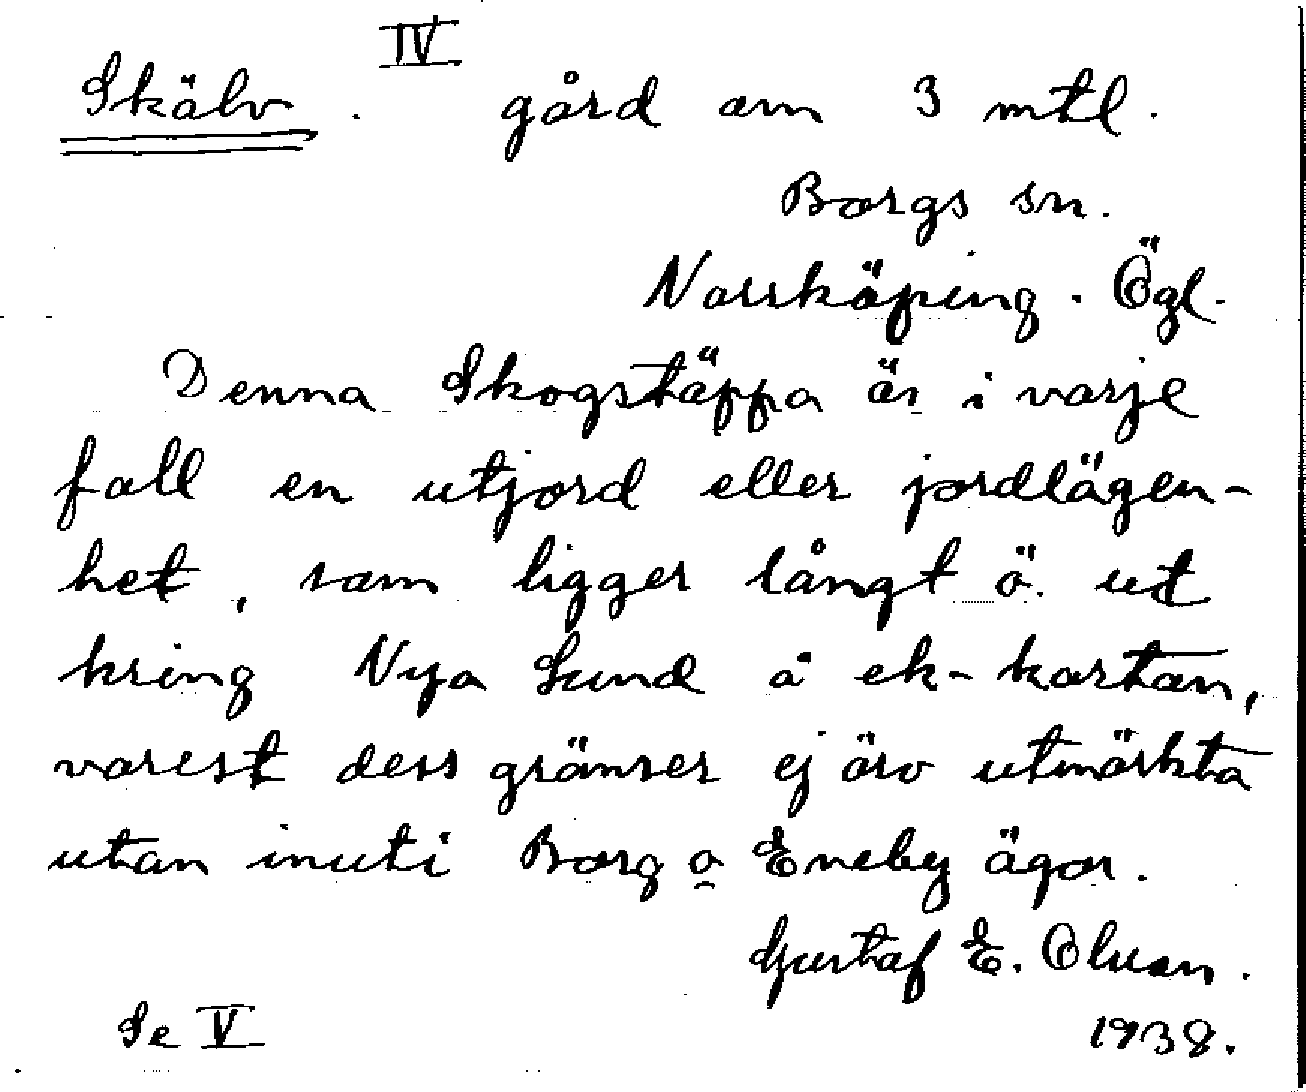 IV
Skälv . gård om 3 mtl.
Borgs sn.
Norrköping . Ögl.
Denna Skogstäppa är i varje
fall en utjord eller jordlägen-
het, som ligger långt ö. ut
kring Nya Lund å ek-kartan,
varest dess gränser ej äro utmärkta
utan inuti Borg o Eneby ägor.
Gustaf E. Olsson.
Se V 1938.